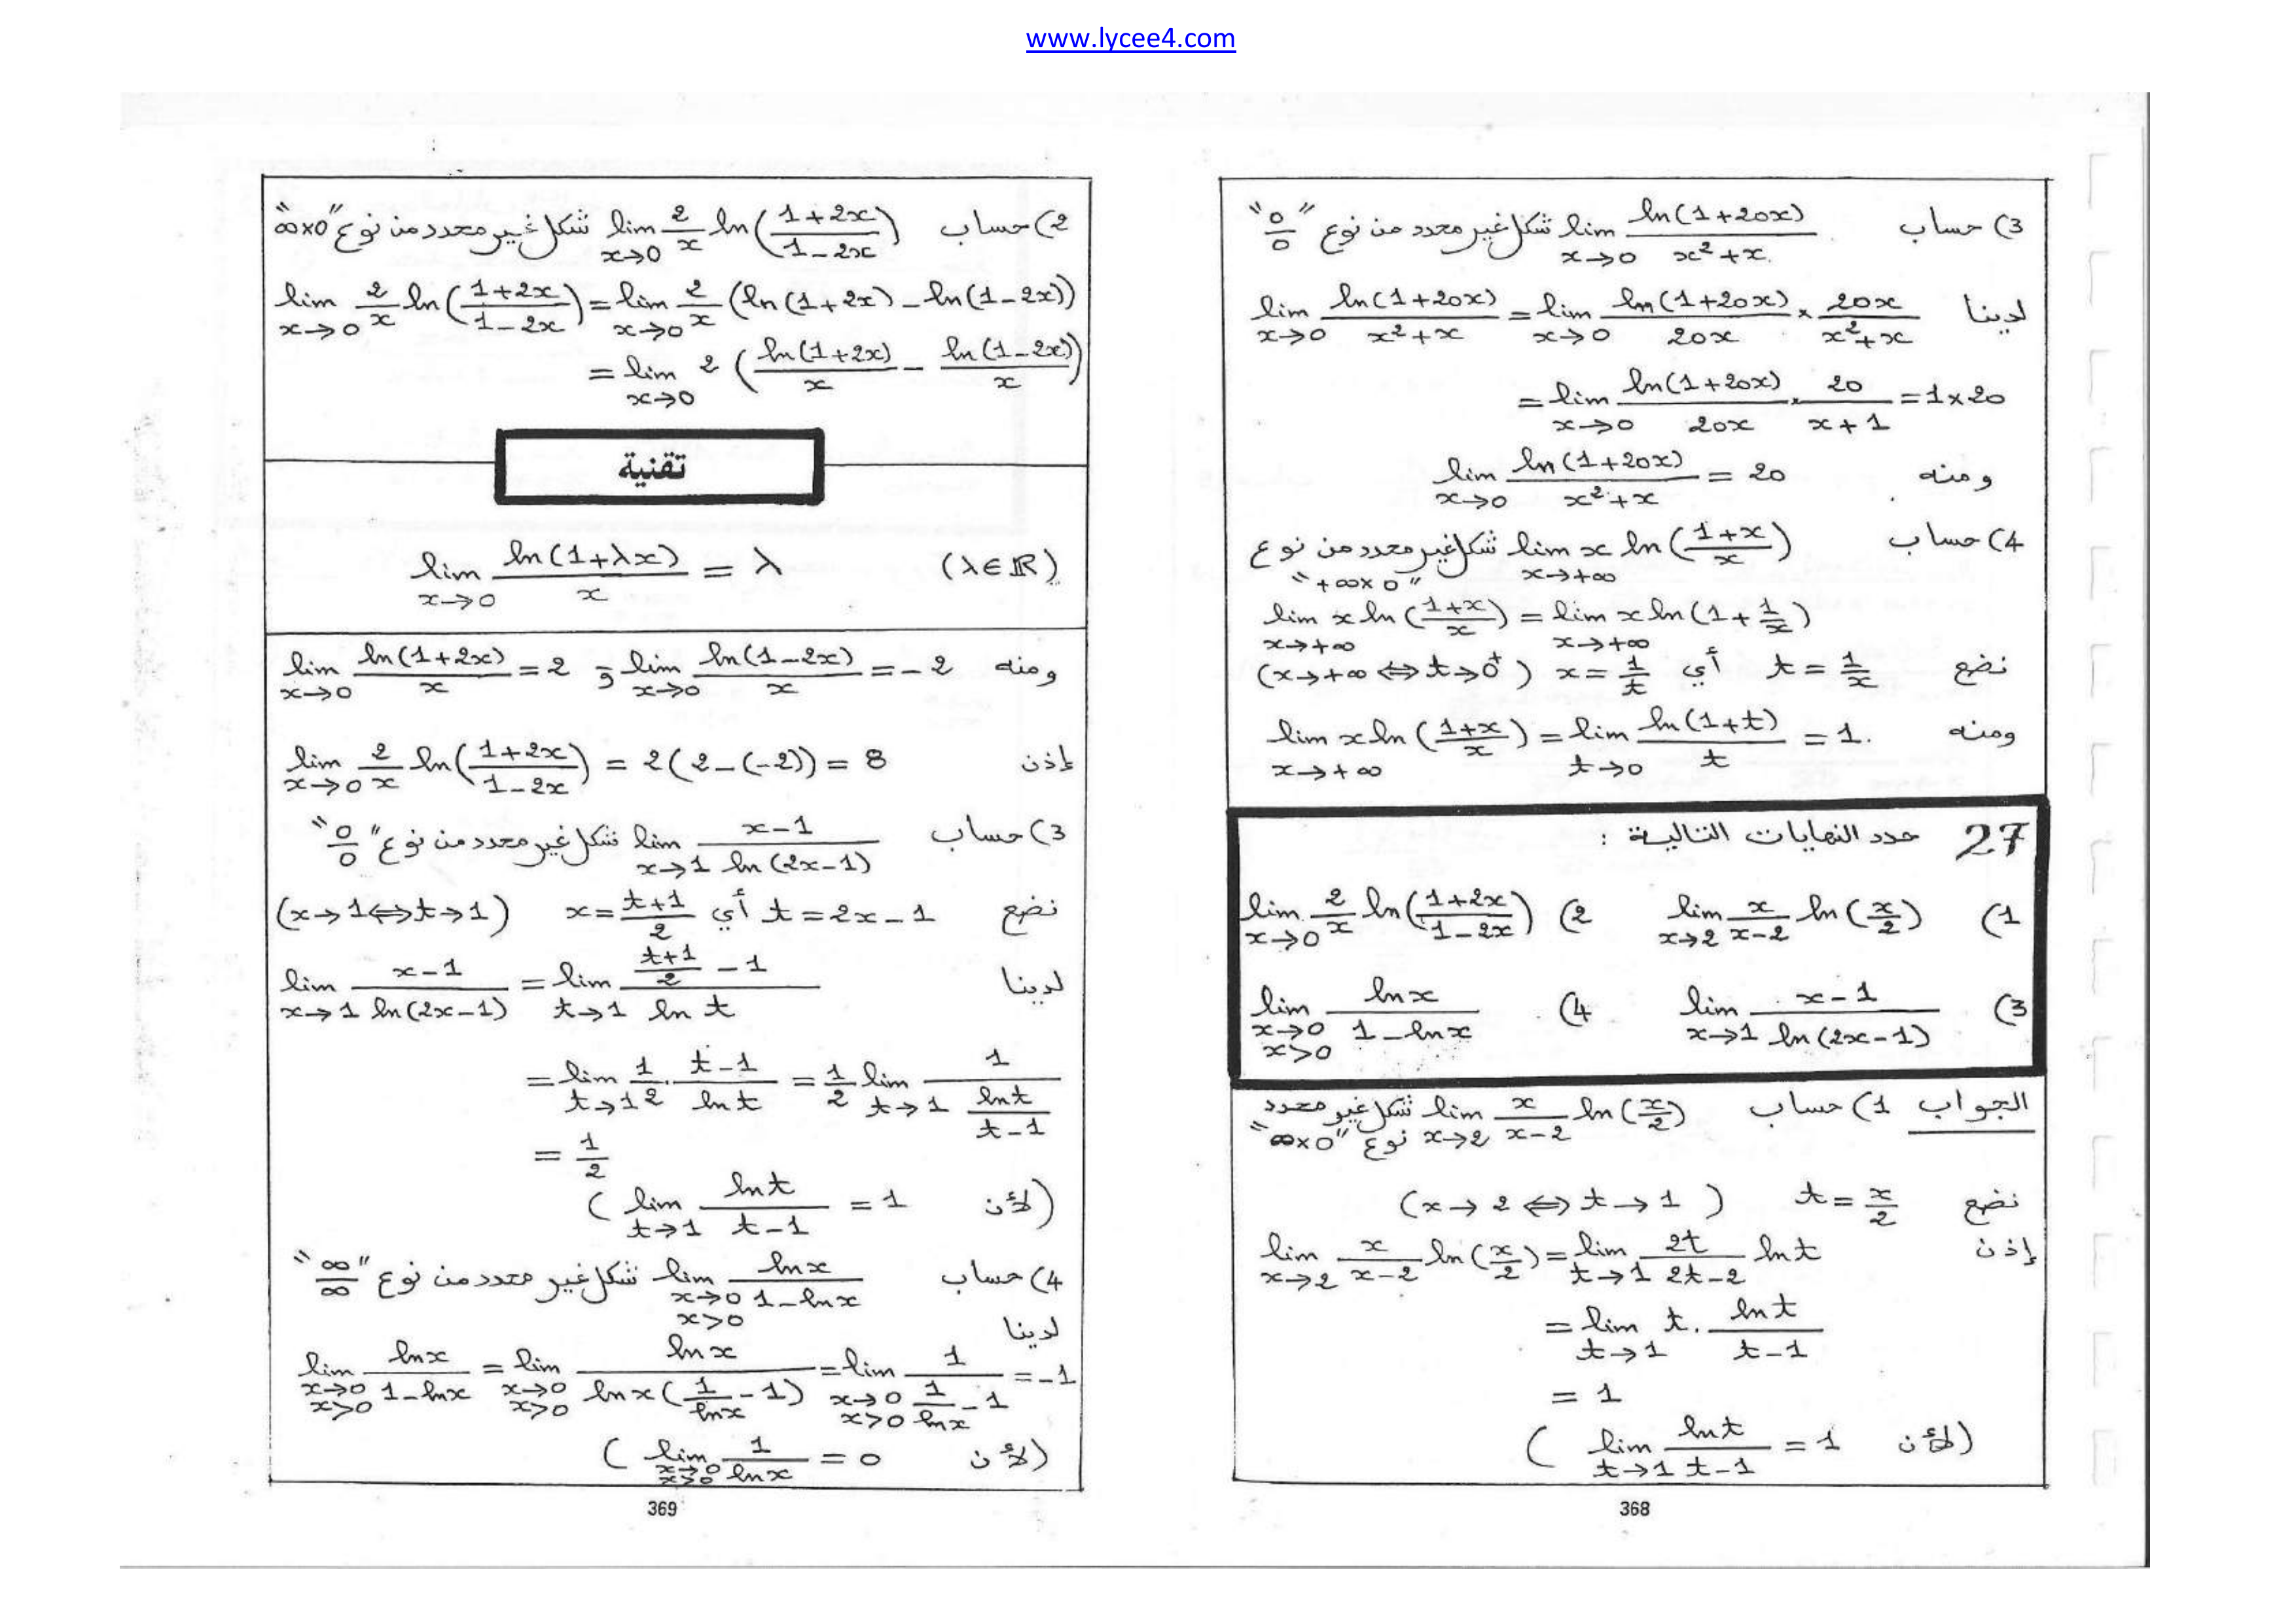 www.lycee4.com
3) حساب lim_{x→0} ln(1+20x)/(x²+x) شكل غير محدد من نوع "0/0"
لدينا lim_{x→0} ln(1+20x)/(x²+x) = lim_{x→0} ln(1+20x)/(20x) × 20x/(x²+x)
= lim_{x→0} ln(1+20x)/(20x) . 20/(x+1) = 1×20
ومنه lim_{x→0} ln(1+20x)/(x²+x) = 20
4) حساب lim_{x→+∞} x ln((1+x)/x) شكل غير محدد من نوع
"+∞×0"
lim_{x→+∞} x ln((1+x)/x) = lim_{x→+∞} x ln(1+1/x)
نضع t = 1/x أي x = 1/t (x→+∞ ⇔ t→0⁺)
ومنه lim_{x→+∞} x ln((1+x)/x) = lim_{t→0} ln(1+t)/t = 1.
27 حدد النهايات التالية :
1) lim_{x→2} x/(x-2) ln(x/2) 2) lim_{x→0} 2/x ln((1+2x)/(1-2x))
3) lim_{x→1} (x-1)/ln(2x-1) 4) lim_{x→0 x>0} ln x/(1-ln x)
الجواب 1) حساب lim_{x→2} x/(x-2) ln(x/2) شكل غير محدد
نوع "∞×0"
نضع t = x/2 (x→2 ⇔ t→1)
إذن lim_{x→2} x/(x-2) ln(x/2) = lim_{t→1} 2t/(2t-2) ln t
= lim_{t→1} t . ln t/(t-1)
= 1
(لأن lim_{t→1} ln t/(t-1) = 1)
368
2) حساب lim_{x→0} 2/x ln((1+2x)/(1-2x)) شكل غير محدد من نوع "∞×0"
lim_{x→0} 2/x ln((1+2x)/(1-2x)) = lim_{x→0} 2/x (ln(1+2x) - ln(1-2x))
= lim_{x→0} 2 (ln(1+2x)/x - ln(1-2x)/x)
تقنية
lim_{x→0} ln(1+λx)/x = λ (λ∈ℝ)
ومنه lim_{x→0} ln(1+2x)/x = 2 و lim_{x→0} ln(1-2x)/x = -2
إذن lim_{x→0} 2/x ln((1+2x)/(1-2x)) = 2(2-(-2)) = 8
3) حساب lim_{x→1} (x-1)/ln(2x-1) شكل غير محدد من نوع "0/0"
نضع t = 2x-1 أي x = (t+1)/2 (x→1 ⇔ t→1)
لدينا lim_{x→1} (x-1)/ln(2x-1) = lim_{t→1} ((t+1)/2 - 1)/ln t
= lim_{t→1} 1/2 . (t-1)/ln t = 1/2 lim_{t→1} 1/(ln t/(t-1))
= 1/2
(لأن lim_{t→1} ln t/(t-1) = 1)
4) حساب lim_{x→0 x>0} ln x/(1-ln x) شكل غير محدد من نوع "∞/∞"
لدينا
lim_{x→0 x>0} ln x/(1-ln x) = lim_{x→0 x>0} ln x/(ln x(1/ln x - 1)) = lim_{x→0 x>0} 1/(1/ln x - 1) = -1
(لأن lim_{x→0 x>0} 1/ln x = 0)
369